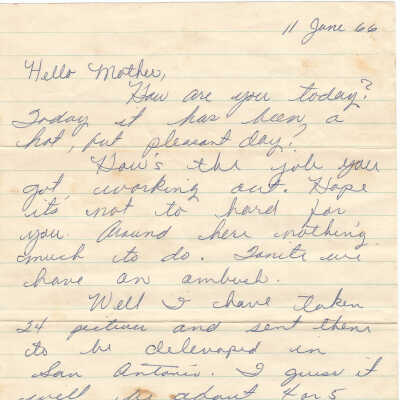 11 June 66
Hello Mother,
How are you today?
Today it has been a
hot, but pleasant day?
How's the job you
got, working out. Hope
its not to hard for
you. Around here nothing
much to do. Tonite we
have an ambush.
Well I have taken
24 pictures and sent them
to be delevoped in
San Antonio. I guess it
will be about 4 or 5